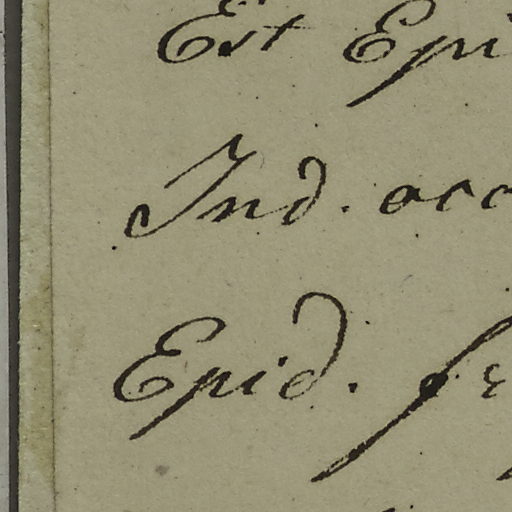 Est Epi
Ind. occ
Epid. fr